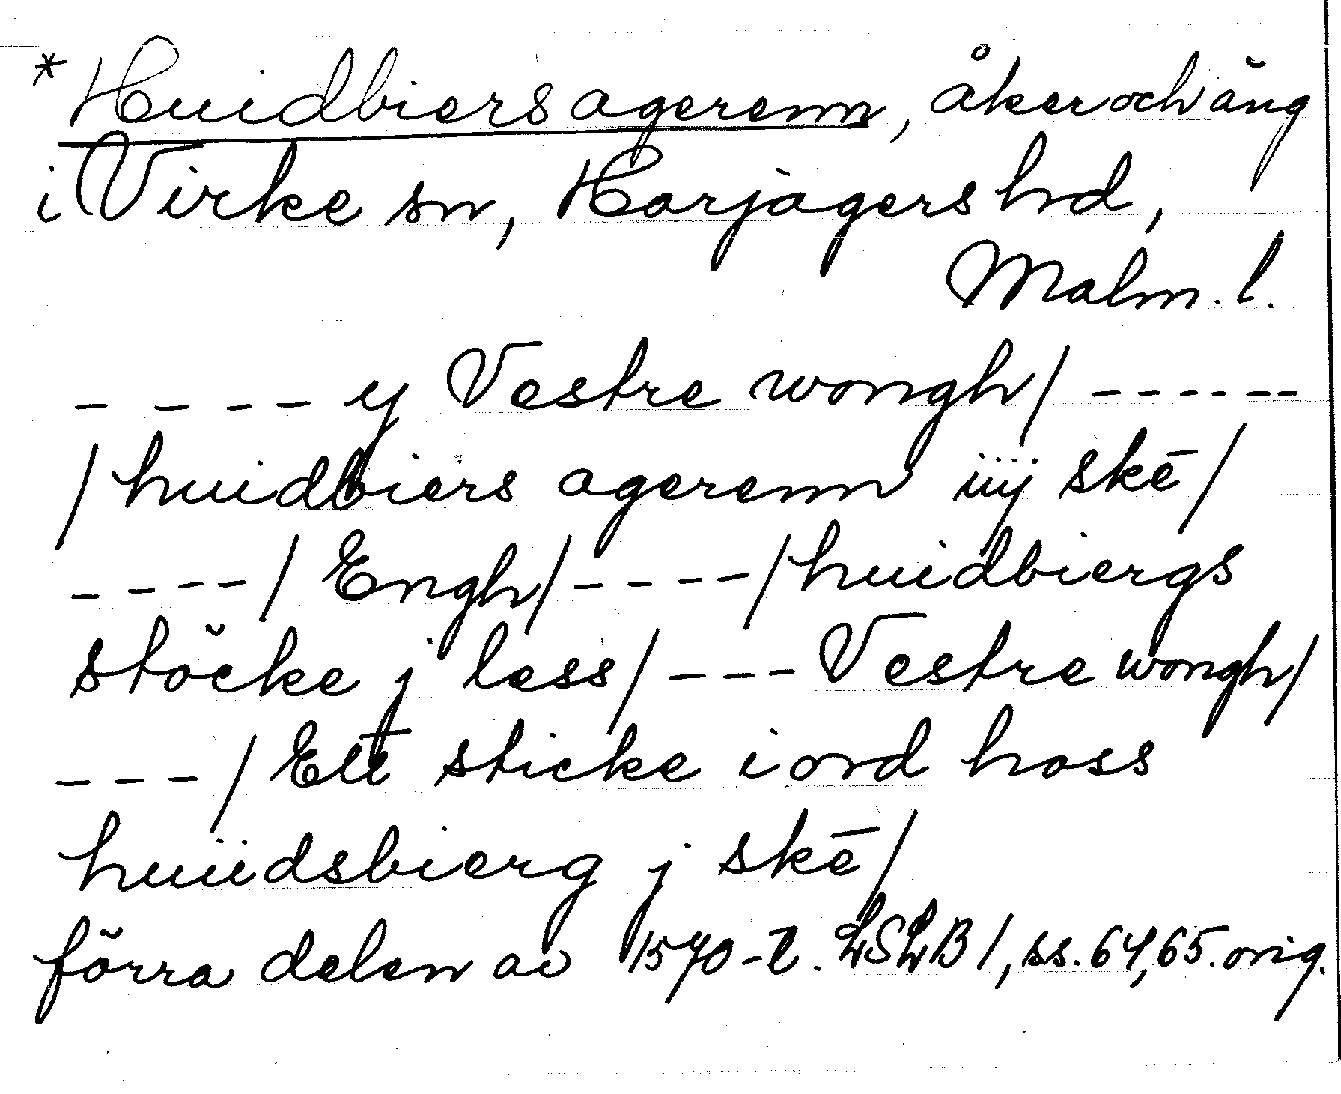 * Huidbiers agerenn, åker och äng
i Virke sn, Harjagers hd,
Malm. l.
- - - - y Vestre wongh/ - - - - - -
/huidbiers agerenn iiij skē/
- - - -/ Engh/- - - -/huidbiergs
stöcke j less/ - - - Vestre wongh/
- - -/ Ett sticke iord hoss
huiidsbierg j skē/
förra delen av 1570-t. LSLB 1, ss. 64, 65. orig.